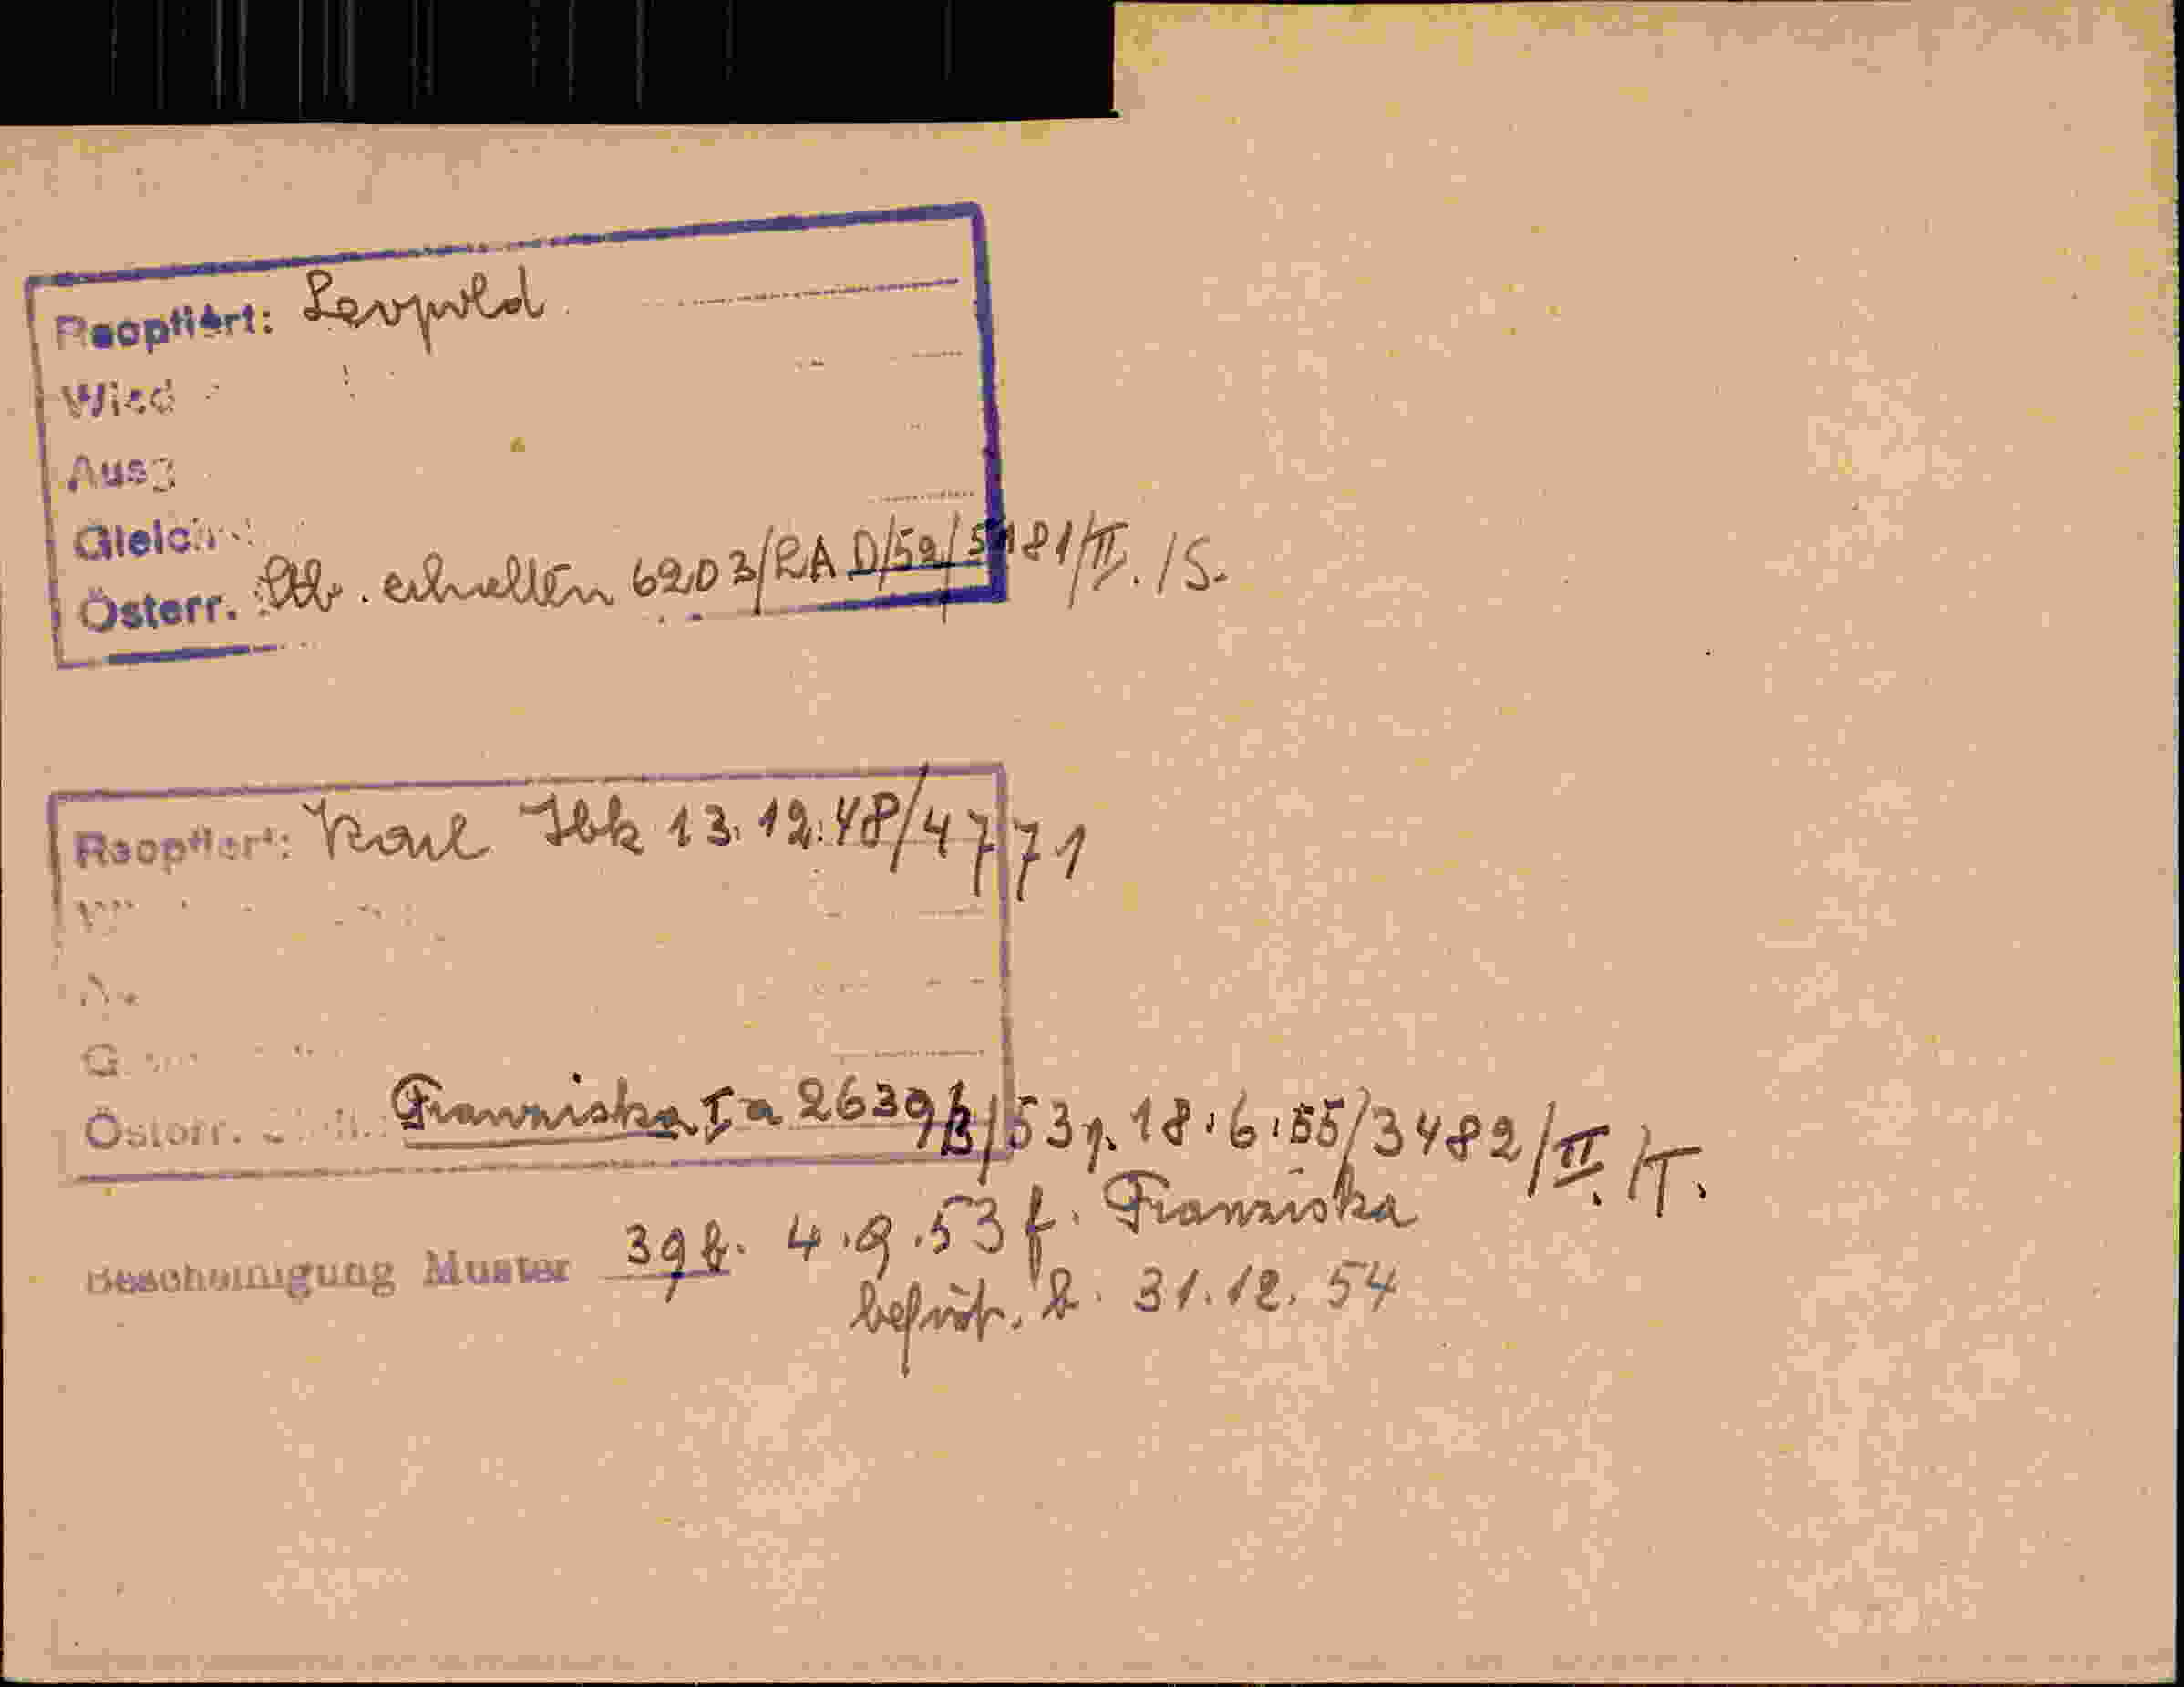 Reoptiert: Leopold
Wied
Ausg
Gleich
Österr. Stb. erhalten 6203/RAD/52/5181/II./S.
Reoptiert: Karl Ibk 13.12.48/4771
Österr. Franziska I a 2639/53 18.6.55/3482/II/T.
Bescheinigung Muster 39b. 4.9.53 f. Franziska
befrist. b. 31.12.54